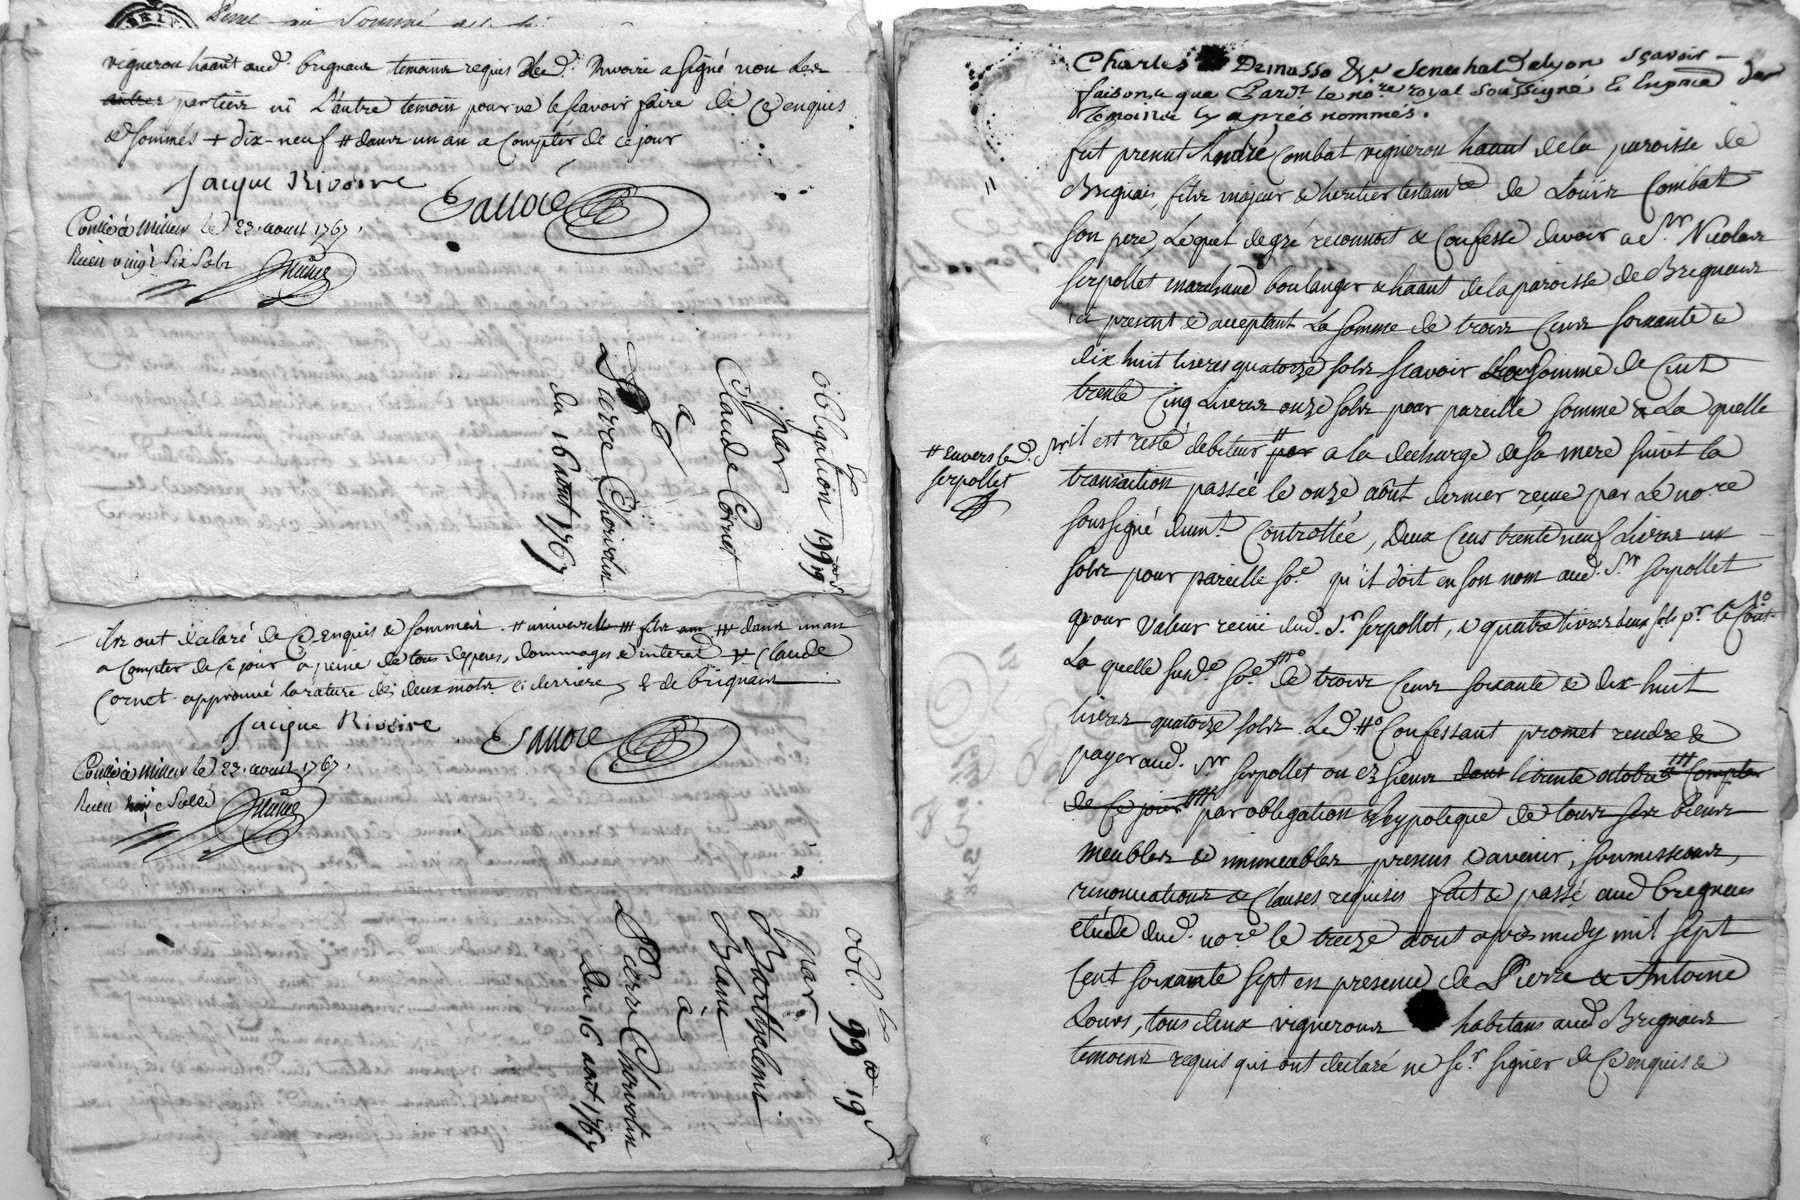 vigneron haant aud. brignais temoins requis led. Rivoire a signé non les
autres parties ni L'autre temoin pour ne le scavoir faire de ce enquis
& sommés + dix-neuf # dans un an a Compter de ce jour
Jacque Rivoire
Conllé à Millery le 22. aoust 1767.
Receu vingt six sols
obligation 199# 19s
par
Claude Cornet
a
Pierre Chervolin
du 16 aout 1767
ils ont declaré de ce enquis & sommés. # universelle ## fils ### dans un an
a Compter de ce jour a peine de tous depens, dommages & interets Claude
Cornet. approuvé la rature des deux mots ci derriere & de brignais
Jacque Rivoire
Conllé à Millery le 22. aoust 1767.
Receu sols
obl. de 99# 19s
par
Barthelemi
Blanc
à
Pierre Chervolin
du 16 aout 1767
Charles Demasso &c Senechal de lyon sçavoir
faisons que Pardt le nore royal soussigné & En presence des
Temoins cy aprés nommés.
fut present André Combat vigneron haant de la paroisse de
Brignais fils majeur & heritier testamre de Louis Combat
son pere, Lequel de gré reconnoit & Confesse devoir a Sr Nicolas
serpollet marchand boulanger & haant de la paroisse de Brignais
ici present & acceptant La somme de trois Cens soixante &
dix huit livres quatorze sols scavoir somme de Cent
trente Cinq Livres onze sols pour pareille somme a La quelle
il est resté debiteur # par a la decharge de sa mere suivt la
# Envers led. Sr
serpollet
transaction passée le onze aôut dernier reçue par Le nore
soussigné dumt Controllée, Deux Cens trente neuf Livres un
sols pour pareille soe qu'il doit en son nom aud. Sr serpollet
pour valeur recue dud. Sr serpollet, & quatre livres deux sols pr le Cout
La quelle susde soe de trois Cens soixante & dix-huit
livres quatorze sols Led. Confessant promet rendre &
payer aud. Sr serpollet ou es siens dans le trente octobre Compter
de Ce jour par obligation & hypoteque de tous ses biens
meubles & immeubles presens & avenir, soumissions,
renonciations & Clauses requises fait & passé aud Brignais
etude dud. nore le treize aout apres midy mil sept
Cent soixante sept en presence de Pierre & Antoine
Louis, tous deux vignerons habitans aud Brignais
temoins requis qui ont declaré ne sr signer de Ce enquis &